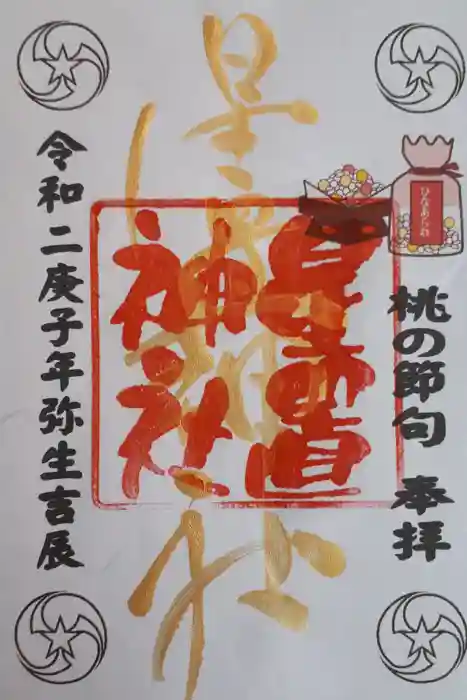 桃の節句 奉拝
ひなあられ
星置神社
星置
神社
令和二庚子年弥生吉辰